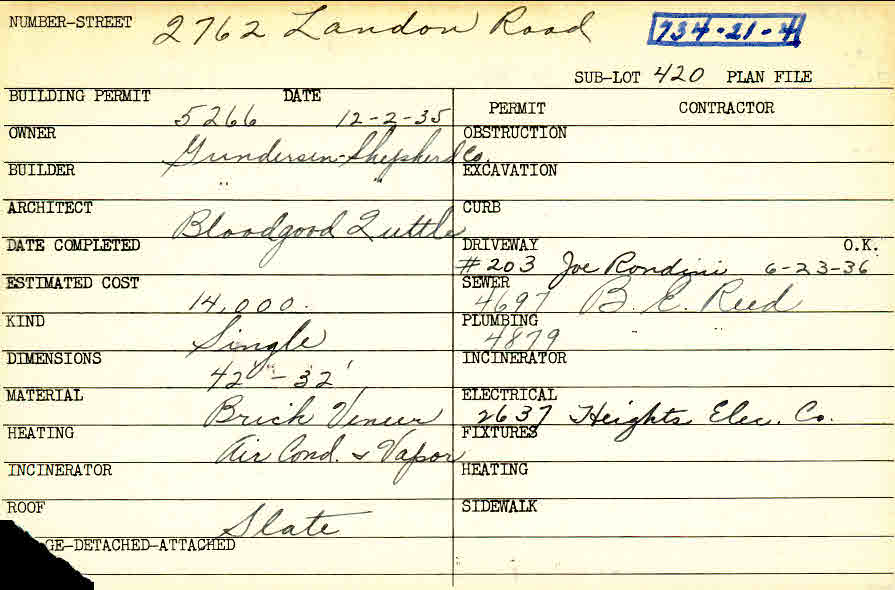 NUMBER-STREET 2762 Landon Road 734-21-4
SUB-LOT 420 PLAN FILE
BUILDING PERMIT 5266 DATE 12-2-35
OWNER Gundersen-Shepherd Co.
BUILDER " "
ARCHITECT Bloodgood Tuttle
DATE COMPLETED
ESTIMATED COST 14,000.
KIND Single
DIMENSIONS 42' - 32'
MATERIAL Brick Veneer
HEATING Air Cond. & Vapor
INCINERATOR
ROOF Slate
GE-DETACHED-ATTACHED
PERMIT CONTRACTOR
OBSTRUCTION
EXCAVATION
CURB
DRIVEWAY O.K.
#203 Joe Rondini 6-23-36
SEWER 4697 B. E. Reed
PLUMBING 4879 " "
INCINERATOR
ELECTRICAL 2637 Heights Elec. Co.
FIXTURES
HEATING
SIDEWALK